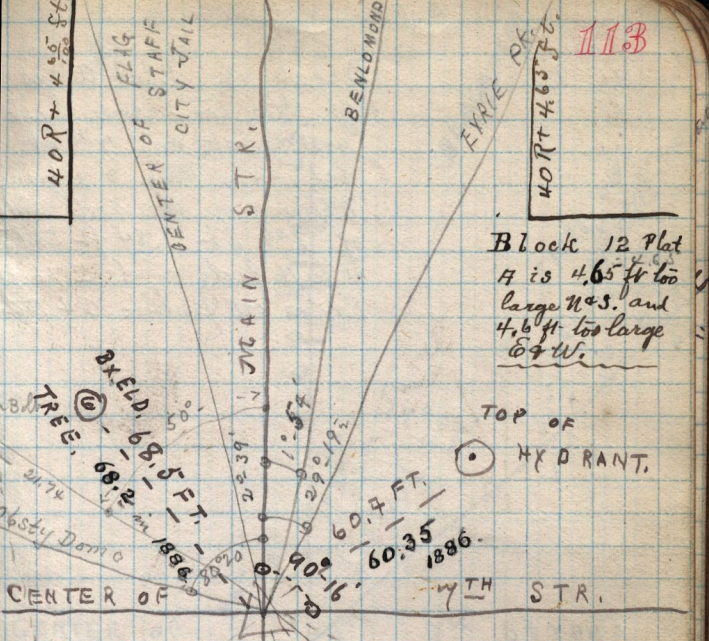 113
40R + 4 65/100 ft
CENTER OF FLAG
STAFF
CITY JAIL
MAIN STR.
BENLOMOND
EYRIE PK.
40R + 4.65 ft.
Block 12 Plat
A is 4.65 ft too
large N&S. and
4.6 ft too large
E&W.
BXELD.
TREE.
68.5 FT.
68.2 in
1886
50°
2°-39'
1°-54'
29°-19½
TOP OF
HYDRANT.
60.4 FT.
60.35
1886.
90°-16'
CENTER OF 7TH STR.